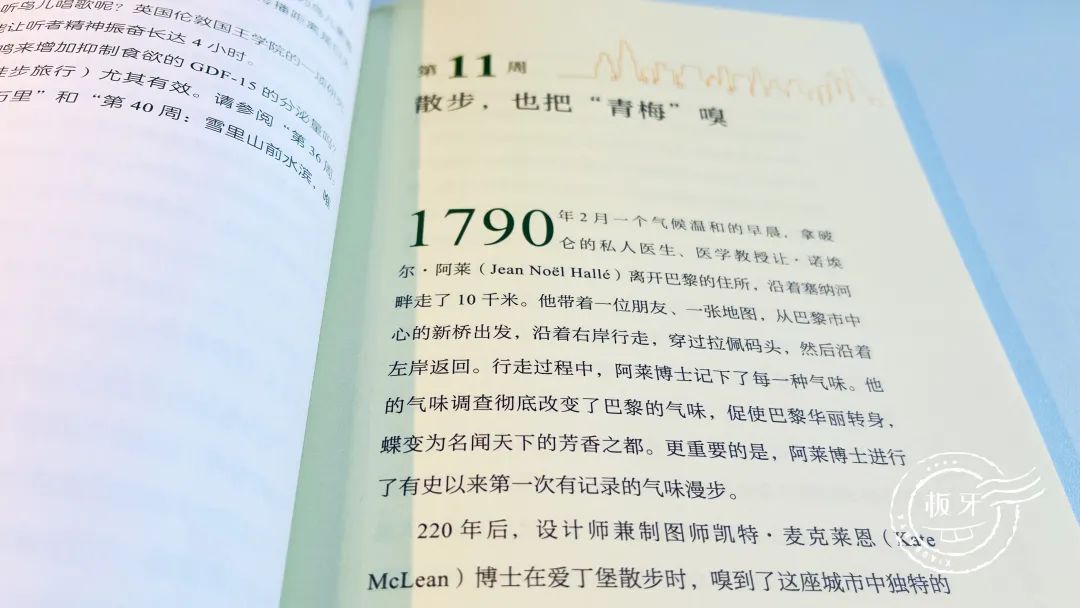 听鸟儿唱歌呢？英国伦敦国王学院的一项研究
能让听者精神振奋长达 4 小时。
鸣来增加抑制食欲的 GDF-15 的分泌量吗？
徒步旅行）尤其有效。请参阅“第 36 周：
百里”和“第 40 周：雪里山前水滨，
第 11 周
散步，也把“青梅”嗅
1790 年 2 月一个气候温和的早晨，拿破
仑的私人医生、医学教授让·诺埃
尔·阿莱（Jean Noël Hallé）离开巴黎的住所，沿着塞纳河
畔走了 10 千米。他带着一位朋友、一张地图，从巴黎市中
心的新桥出发，沿着右岸行走，穿过拉佩码头，然后沿着
左岸返回。行走过程中，阿莱博士记下了每一种气味。他
的气味调查彻底改变了巴黎的气味，促使巴黎华丽转身，
蝶变为名闻天下的芳香之都。更重要的是，阿莱博士进行
了有史以来第一次有记录的气味漫步。
220 年后，设计师兼制图师凯特·麦克莱恩（Kate
McLean）博士在爱丁堡散步时，嗅到了这座城市中独特的
板牙